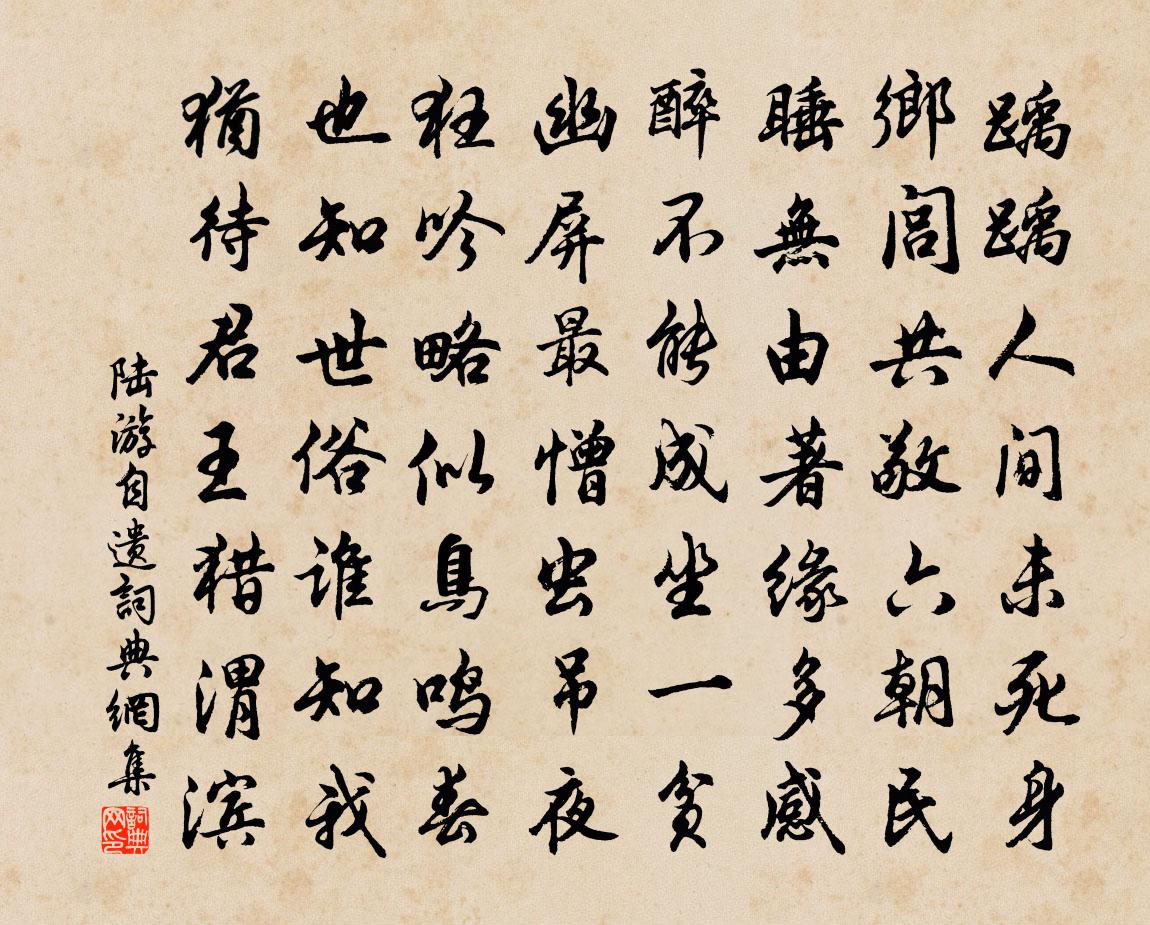 踽踽人间未死身
鄉閭共敬六朝民
睡無由著緣多感
醉不能成坐一贫
幽屏最憎虫吊夜
狂吟略似鳥鸣春
也知世俗谁知我
猶待君王猎渭滨
陆游自遗詞典網集
詞典网印